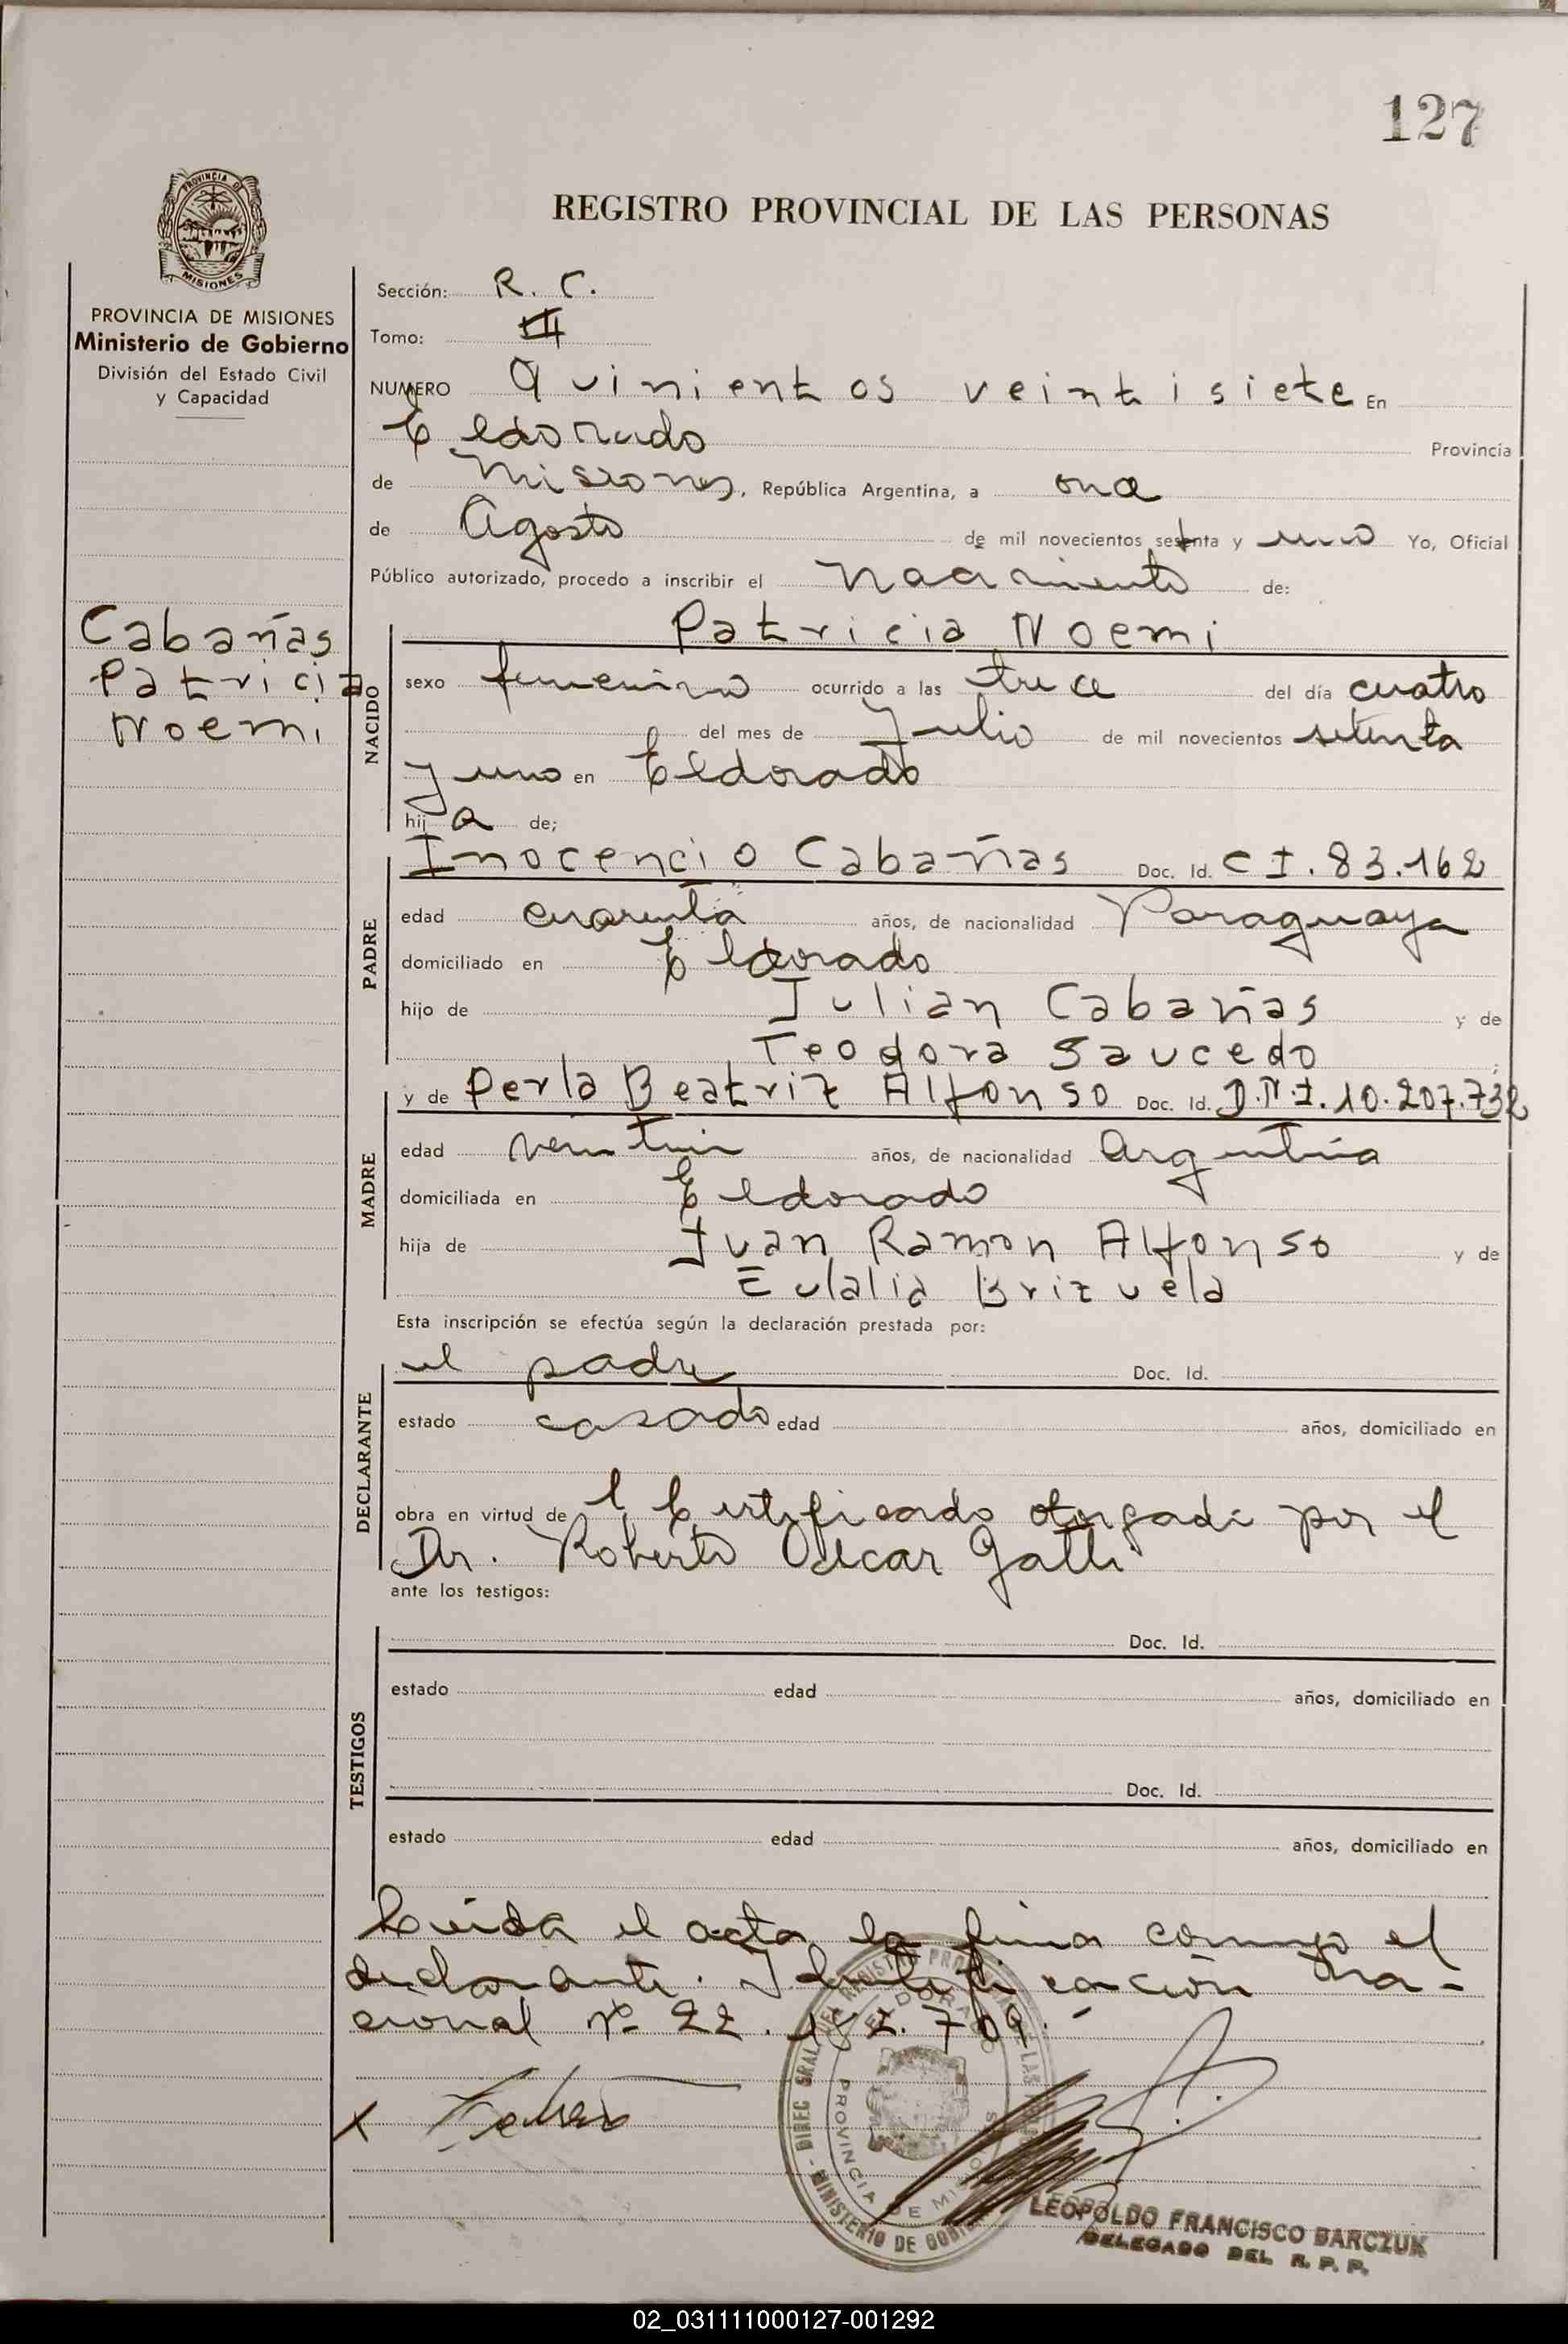 127
PROVINCIA DE MISIONES
REGISTRO PROVINCIAL DE LAS PERSONAS
PROVINCIA DE MISIONES
Ministerio de Gobierno
División del Estado Civil
y Capacidad
Cabañas
Patricia
Noemi
Sección: R. C.
Tomo: III
NUMERO Quinientos veintisiete En
Eldorado Provincia
de Misiones, República Argentina, a once
de Agosto de mil novecientos setenta y uno Yo, Oficial
Público autorizado, procedo a inscribir el nacimiento de:
NACIDO
Patricia Noemi
sexo femenino ocurrido a las trece del día cuatro
del mes de Julio de mil novecientos setenta
y uno en Eldorado
hija de;
PADRE
Inocencio Cabañas Doc. Id. C I. 83.162
edad cuarenta años, de nacionalidad Paraguaya
domiciliado en Eldorado
hijo de Julian Cabañas y de
Teodora Saucedo
MADRE
y de Perla Beatriz Alfonso Doc. Id. D.N.I. 10.207.732
edad años, de nacionalidad Argentina
domiciliada en Eldorado
hija de Juan Ramon Alfonso y de
Eulalia Brizuela
Esta inscripción se efectúa según la declaración prestada por:
DECLARANTE
el padre Doc. Id.
estado casado edad años, domiciliado en
obra en virtud de Certificado otorgado por el
Dr. Roberto Oscar Gatti
ante los testigos:
TESTIGOS
Doc. Id.
estado edad años, domiciliado en
Doc. Id.
estado edad años, domiciliado en
Leída el acta la firma conmigo el
declarante. Identificación Na-
cional Nº 22. 709.
LEOPOLDO FRANCISCO BARCZUK
DELEGADO DEL R. P. P.
02_031111000127-001292